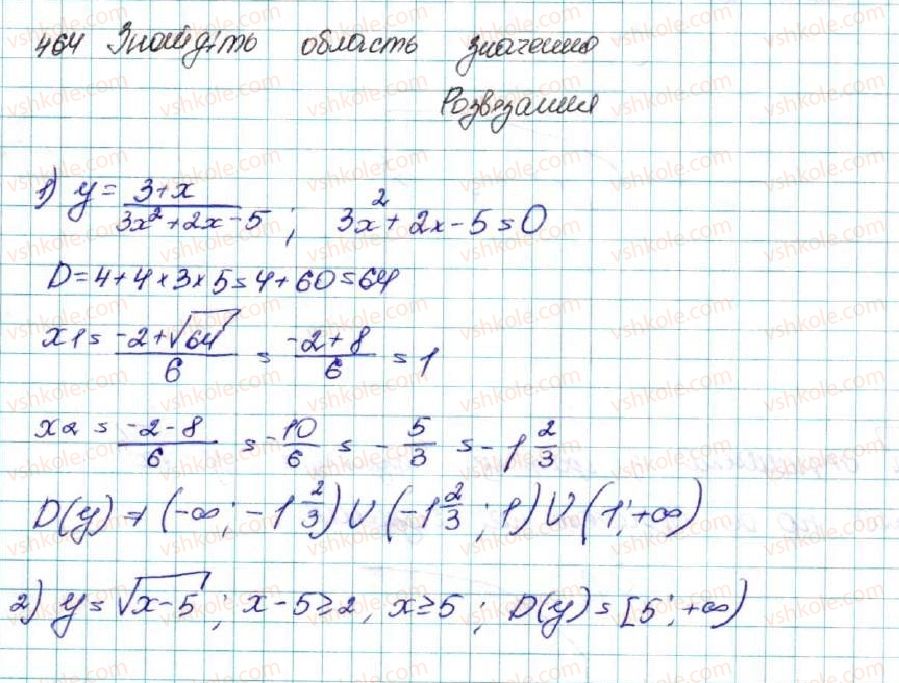 464 Знайдіть область значення
Розвязання
1) y = (3+x)/(3x²+2x-5) ; 3x²+2x-5=0
D=4+4×3×5=4+60=64
x1 = (-2+√64)/6 = (-2+8)/6 = 1
x2 = (-2-8)/6 = -10/6 = -5/3 = -1 2/3
D(y) = (-∞; -1 2/3) U (-1 2/3; 1) U (1; +∞)
2) y = √x-5 ; x-5≥2, x≥5 ; D(y) = [5; +∞)